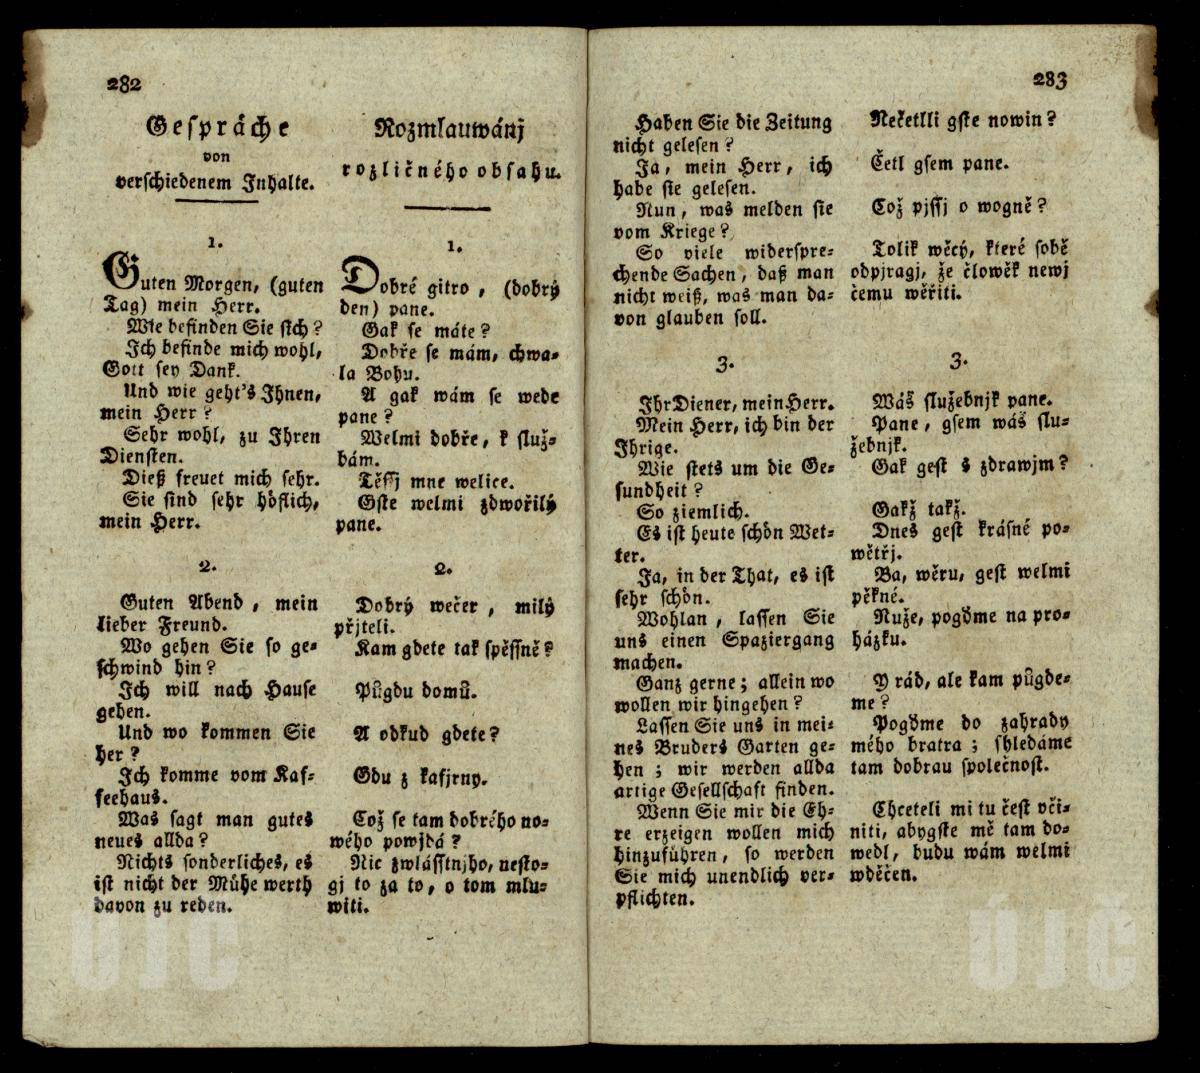 282
Gespräche
von
verschiedenem Inhalte.
1.
Guten Morgen, (guten
Tag) mein Herr.
Wie befinden Sie sich?
Ich befinde mich wohl,
Gott sey Dank.
Und wie geht's Ihnen,
mein Herr?
Sehr wohl, zu Ihren
Diensten.
Dieß freuet mich sehr.
Sie sind sehr höflich,
mein Herr.
2.
Guten Abend, mein
lieber Freund.
Wo gehen Sie so ge-
schwind hin?
Ich will nach Hause
gehen.
Und wo kommen Sie
her?
Ich komme vom Kaf-
feehaus.
Was sagt man gutes
neues allda?
Nichts sonderliches, es
ist nicht der Mühe werth
davon zu reden.
Rozmlauwánj
rozličného obsahu.
1.
Dobré gitro, (dobrý
den) pane.
Gak se máte?
Dobře se mám, chwa-
la Bohu.
A gak wám se wede
pane?
Welmi dobře, k služ-
bám.
Těssj mne welice.
Gste welmi zdwořilý
pane.
2.
Dobrý wečer, milý
přjteli.
Kam gdete tak spěssně?
Půgdu domů.
A odkud gdete?
Gdu z kafjrny.
Což se tam dobrého no-
wého powjdá?
Nic zwlásstnjho, nesto-
gj to za to, o tom mlu-
witi.
283
Haben Sie die Zeitung
nicht gelesen?
Ja, mein Herr, ich
habe sie gelesen.
Nun, was melden sie
vom Kriege?
So viele widerspre-
chende Sachen, daß man
nicht weiß, was man da-
von glauben soll.
3.
Ihr Diener, mein Herr.
Mein Herr, ich bin der
Ihrige.
Wie stets um die Ge-
sundheit?
So ziemlich.
Es ist heute schön Wet-
ter.
Ja, in der That, es ist
sehr schön.
Wohlan, lassen Sie
uns einen Spaziergang
machen.
Ganz gerne; allein wo
wollen wir hingehen?
Lassen Sie uns in mei-
nes Bruders Garten ge-
hen; wir werden allda
artige Gesellschaft finden.
Wenn Sie mir die Eh-
re erzeigen wollen mich
hinzuführen, so werden
Sie mich unendlich ver-
pflichten.
Nečetlli gste nowin?
Četl gsem pane.
Což pjssj o wogně?
Tolik wěcý, které sobě
odpjragj, že člowěk newj
čemu wěřiti.
3.
Wáš služebnjk pane.
Pane, gsem wáš slu-
žebnjk.
Gak gest s zdrawjm?
Gakž takž.
Dnes gest krásné po-
wětřj.
Ba, wěru, gest welmi
pěkné.
Nuže, pogďme na pro-
házku.
Y rád, ale kam půgde-
me?
Pogďme do zahrady
mého bratra; shledáme
tam dobrau společnost.
Chceteli mi tu čest vči-
niti, abygste mě tam do-
wedl, budu wám welmi
wděčen.
ÚJČ
ÚJČ